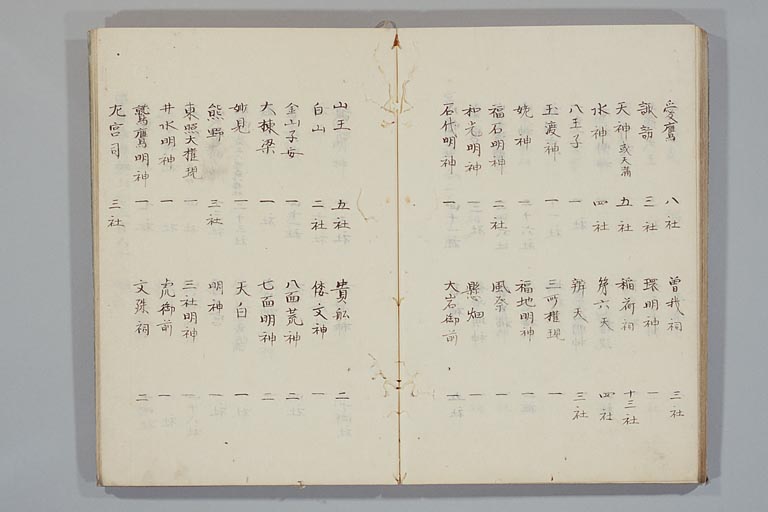 愛鷹 八社 曽我祠 三社
諏訪 三社 環明神 一
天神或天満 五社 稲荷祠 十三社
水神 四社 第六天 四社
八王子 一 辨天 三社
玉渡神 一 三所権現 一
姥神 一 福地明神 一
福石明神 二社 風祭 一
和光明神 一 懸畑 一
石代明神 一 大岩御前 一
山王 五社 貴舩 二
白山 二社 倭文神 一
金山子安 一 八面荒神 二
大棟梁 一 七面明神 二
妙見 一 天白 一
熊野 三社 明神 一
東照大権現 一 三社明神 一
井水明神 一 虎御前 一
鷲鷹明神 一 文殊祠 二
左宮司 三社